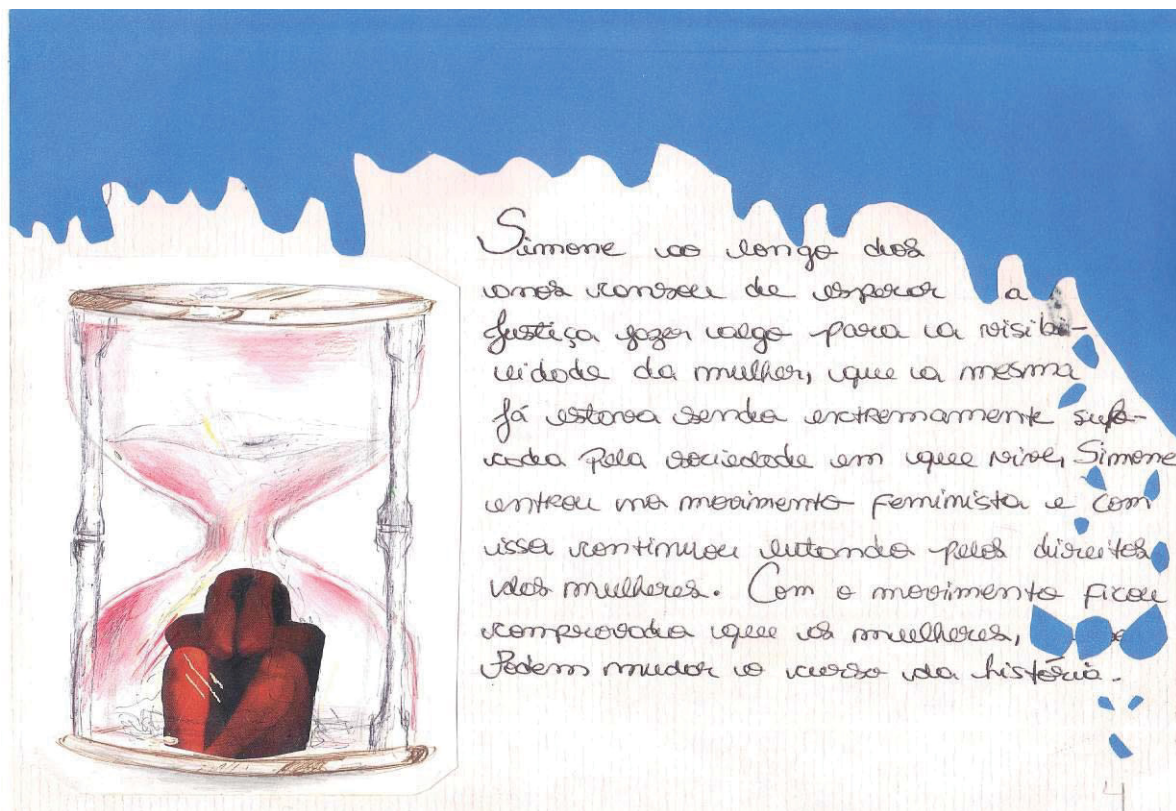 Simone ao longo dos
anos cansou de esperar a
Justiça fazer algo para a visibi-
lidade da mulher, que a mesma
já estava sendo extremamente sufo-
cada pela sociedade em que vive, Simone
entrou no movimento feminista e com
isso continuou lutando pelos direitos
das mulheres. Com o movimento ficou
comprovado que as mulheres,
Podem mudar o curso da história.
4